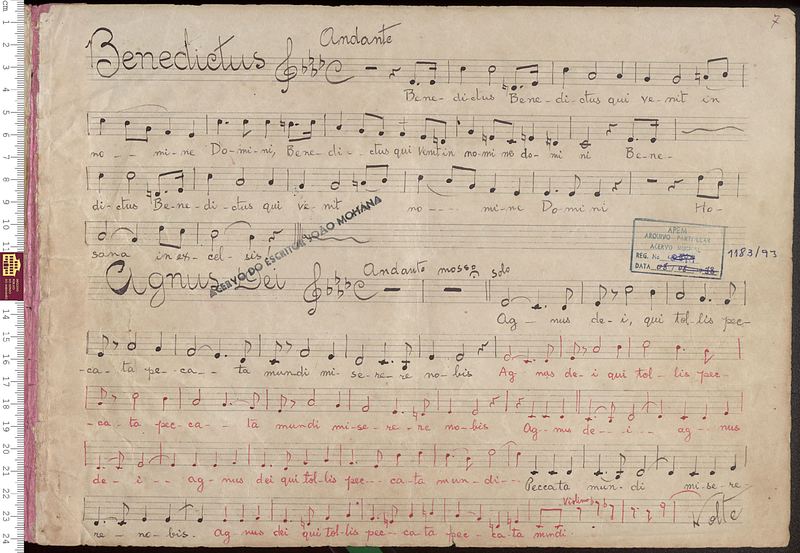 7
Andante
Benedictus
Bene- dictus Bene- di- ctus qui ve- nit in
no - - mi- ne Do-mi-ni, Bene- di - ctus qui Venit in no-mi no do- mi ni Be-ne-
di- ctus Be-ne- di- ctus qui ve- nit no- - - - mi-ne Do-mi ni Ho-
sana in ex- cel- sis
ACERVO DO ESCRITOR JOÃO MOHANA
APEM
ARQUIVO PARTICULAR
ACERVO MUSICAL
REG. No
DATA
1183/93
Agnus Dei
Andante mosso solo
Ag - nus de- i, qui tol-lis pec-
-ca- ta pe- ca- - ta mundi mi- se- re-re no-bis Ag- nus de- i qui tol- lis pec-
-ca- ta pec- ca- - ta mundi mi-se- re- re no-bis Ag- nus de- - i - - ag- - nus
de- - i - - ag- nus dei qui tol-lis pec- - ca-ta mun- di- - - Peccata mun- di mi-se- re
Violino
Volte
re- no- bis. ag- nus dei qui tol-lis pec- - ca-ta pec- ca-ta mundi.